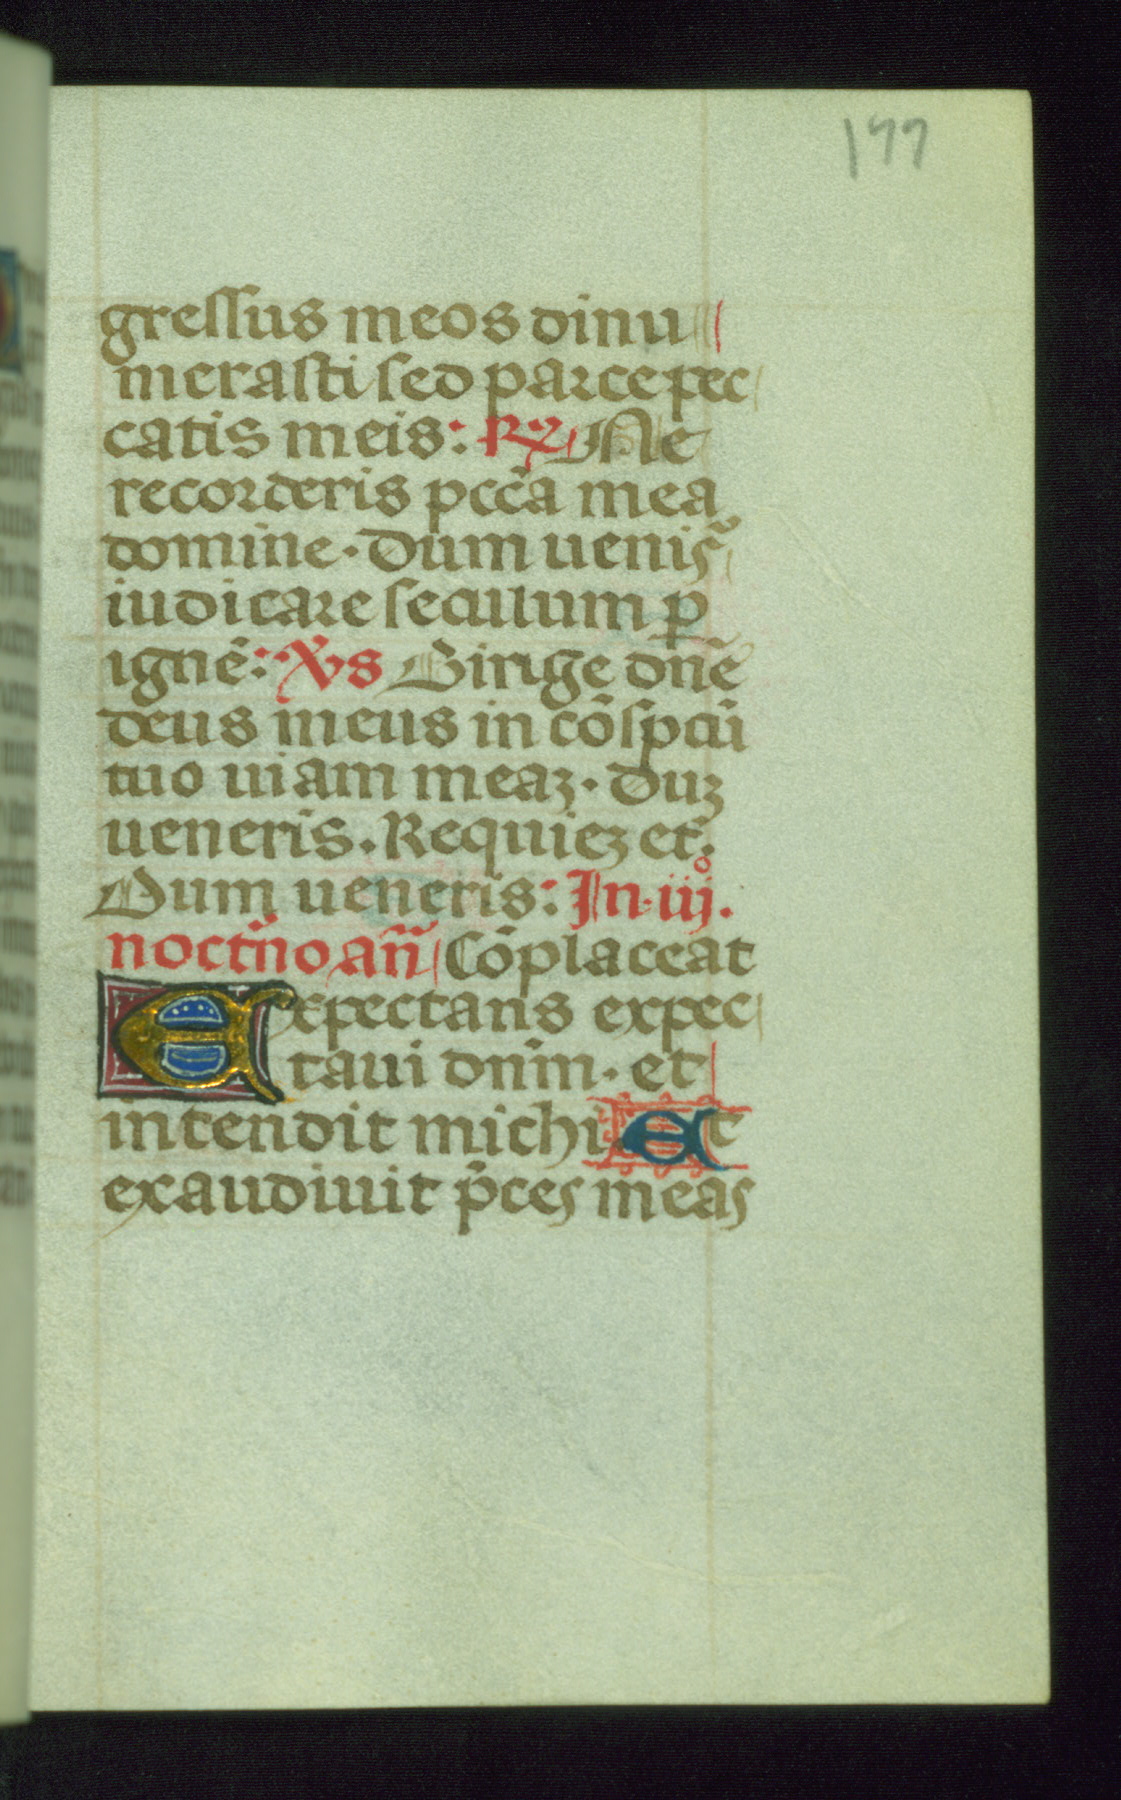 177
gressus meos dinu
merasti sed parce pec
catis meis: R℣ Ne
recorderis pcc̃a mea
domine. Dum uenis̃
iudicare seculum p̱
ignẽ: V̇s Dirige dñe
deus meus in cõspcũ
tuo uiam meaꝫ. Duꝫ
ueneris. Requieꝫ et.
Dum ueneris: In .iijº.
noctñno añ Cõplaceat
Expectans expec
taui dnĩm. et
intendit michi Et
exaudiuit p̃ces meas